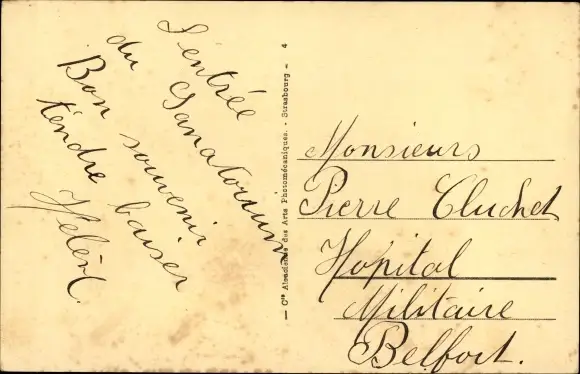 L'entrée
du Sanatorium
Bon souvenir
tendre baiser
Cie Alsacienne des Arts Photomécaniques. - Strasbourg - 4
Monsieurs
Pierre Cluchet
Hopital
Militaire
Belfort.